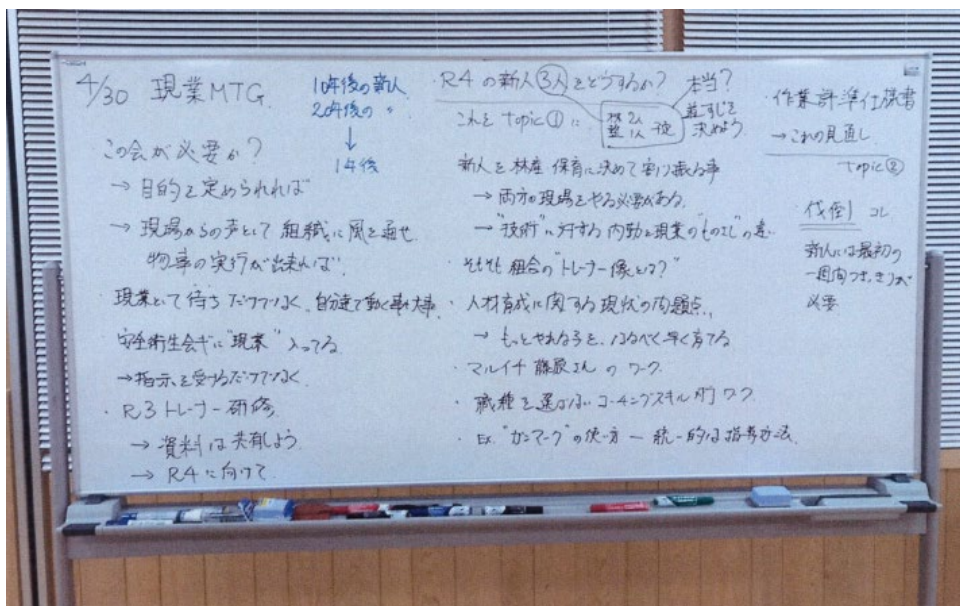 4/30 現業MTG.
10年後の新人
20年後の 〃
↓
1年後
この会が必要か?
→ 目的を定められれば
→ 現場からの声として 組織に風を通せ、
物事の実行が出来れば、
現業として待つだけでなく、自分達で動く事が大事。
安全衛生会ギに"現業"入ってる
→指示を受けるだけでなく
・R3トレーナー研修
→ 資料は共有しよう
→ R4に向けて
・R4の新人3人をどうするか?
これをtopic①に
本当?
筋すじを
決めよう
新人を林産 保育に決めて割り振る事
→ 両方の現場をやる必要がある。
→ "技術"に対する内勤と現業の"ものさし"の違い
そもそも組合の"トレーナー像とは?"
・人材育成に関する現状の問題点、
→ もっとやれる子を、なるべく早く育てる
・マルイチ 藤原さん の ワーク
・職種を選ばないコーチングスキル的ワーク
・Ex. "ガンマーク"の使い方 — 統一的な指導方法
作業標準仕様書
→これの見直し
topic②
伐倒 コレ
新人には最初の
一週間つきっきりが
必要